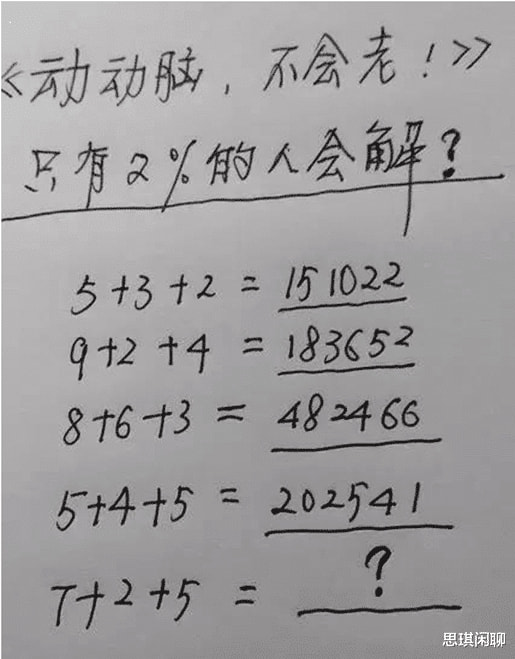 《动动脑，不会老！》
只有2%的人会解？
5+3+2=151022
9+2+4=183652
8+6+3=482466
5+4+5=202541
7+2+5=?
思琪闲聊